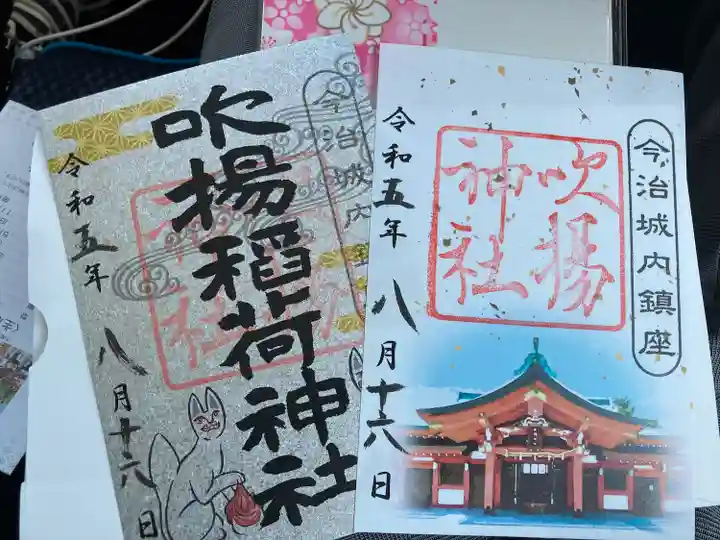 吹揚稲荷神社
今治城内
令和五年
八月十六日
今治城内鎮座
吹揚
神社
令和五年
八月十六日